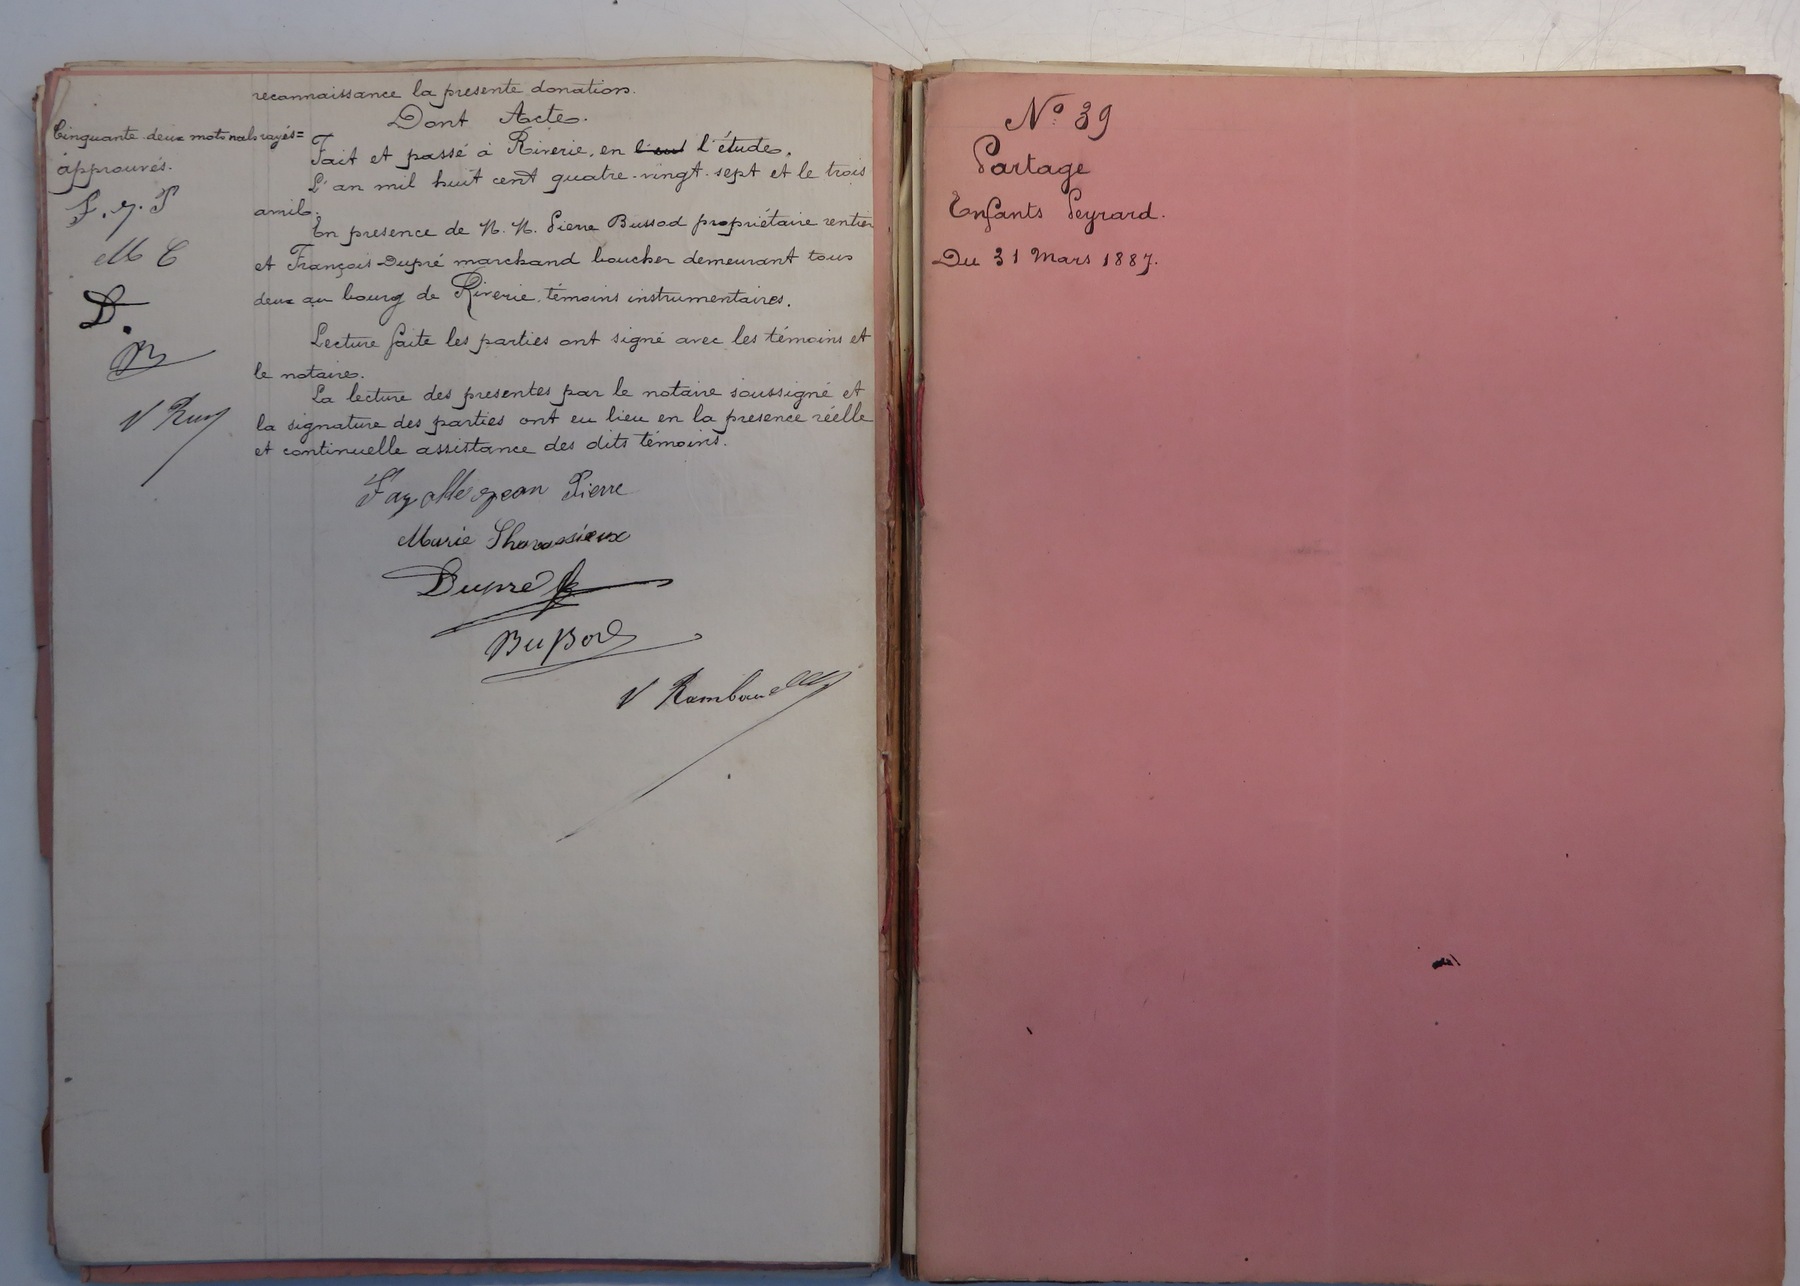 reconnaissance la presente donation.
Dont Acte.
Fait et passé à Riverie, en l'étude,
L'an mil huit cent quatre-vingt-sept et le trois
avril.
En presence de M. M. Pierre Bussod propriétaire rentier
et François Dupré marchand boucher demeurant tous
deux au bourg de Riverie, témoins instrumentaires.
Lecture faite les parties ont signé avec les témoins et
le notaire.
La lecture des presentes par le notaire soussigné et
la signature des parties ont eu lieu en la presence réelle
et continuelle assistance des dits témoins.
Cinquante deux mots nuls rayés=
approuvés.
F. J. P
M C
D.
B
V Ram
Fayolle Jean Pierre
Marie Chavassieux
Dupré
Bussod
V Rambaud
N° 39
Partage
Enfants Peyrard.
Du 31 Mars 1887.